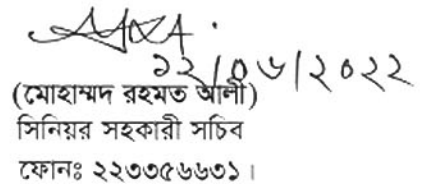 ১২/০৬/২০২২
(মোহাম্মদ রহমত আলী)
সিনিয়র সহকারী সচিব
ফোনঃ ২২৩৩৫৬৬৩১।